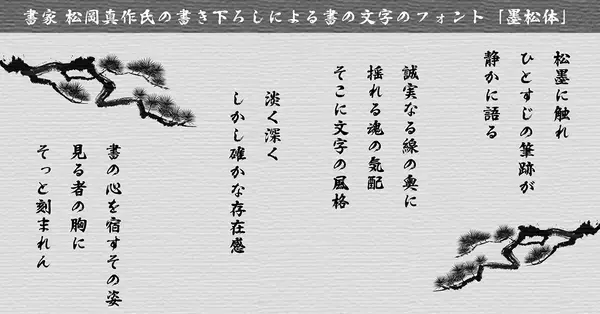 書家 松岡真作氏の書き下ろしによる書の文字のフォント「墨松体」
松墨に触れ
ひとすじの筆跡が
静かに語る
誠実なる線の奥に
揺れる魂の気配
そこに文字の風格
淡く深く
しかし確かな存在感
書の心を宿すその姿
見る者の胸に
そっと刻まれん